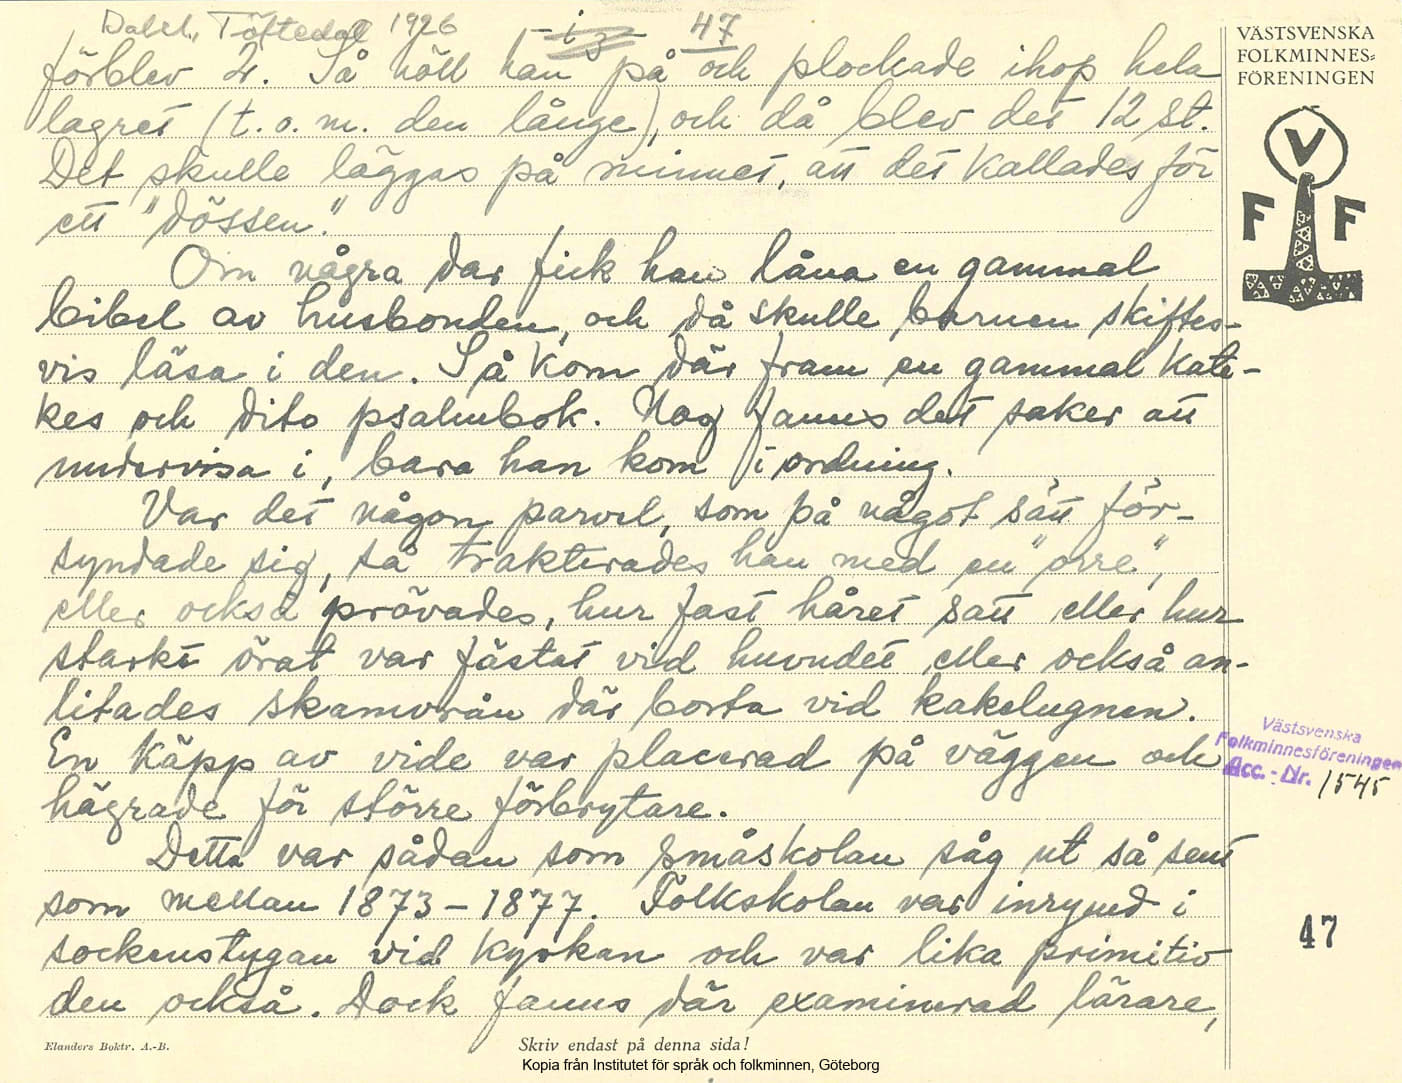 Dalsl., Töftedal 1926 47
förblev 2. Så höll han på och plockade ihop hela
lagret (t.o.m. den långe), och då blev det 12 st.
Det skulle läggas på minnet, att det kallades för
ett "dössen."
Om några dar fick han låna en gammal
bibel av husbonden, och då skulle barnen skiftes-
vis läsa i den. Så kom där fram en gammal kate-
kes och dito psalmbok. Nog fanns det saker att
undervisa i, bara han kom i ordning.
Var det någon parvel, som på något sätt för-
syndade sig, så trakterades han med en "orre",
eller också prövades, hur fast håret satt eller hur
starkt örat var fästat vid huvudet eller också an-
litades skamvrån där borta vid kakelugnen.
En käpp av vide var placerad på väggen och
hägrade för större förbrytare.
Detta var sådan som småskolan såg ut så sent
som mellan 1873–1877. Folkskolan var inrymd i
sockenstugan vid kyrkan och var lika primitiv
den också. Dock fanns där examinerad lärare,
VÄSTSVENSKA
FOLKMINNES=
FÖRENINGEN
V
F F
Västsvenska
Folkminnesföreningen
Acc.-Nr. 1545
47
Elanders Boktr. A.-B.
Skriv endast på denna sida!
Kopia från Institutet för språk och folkminnen, Göteborg